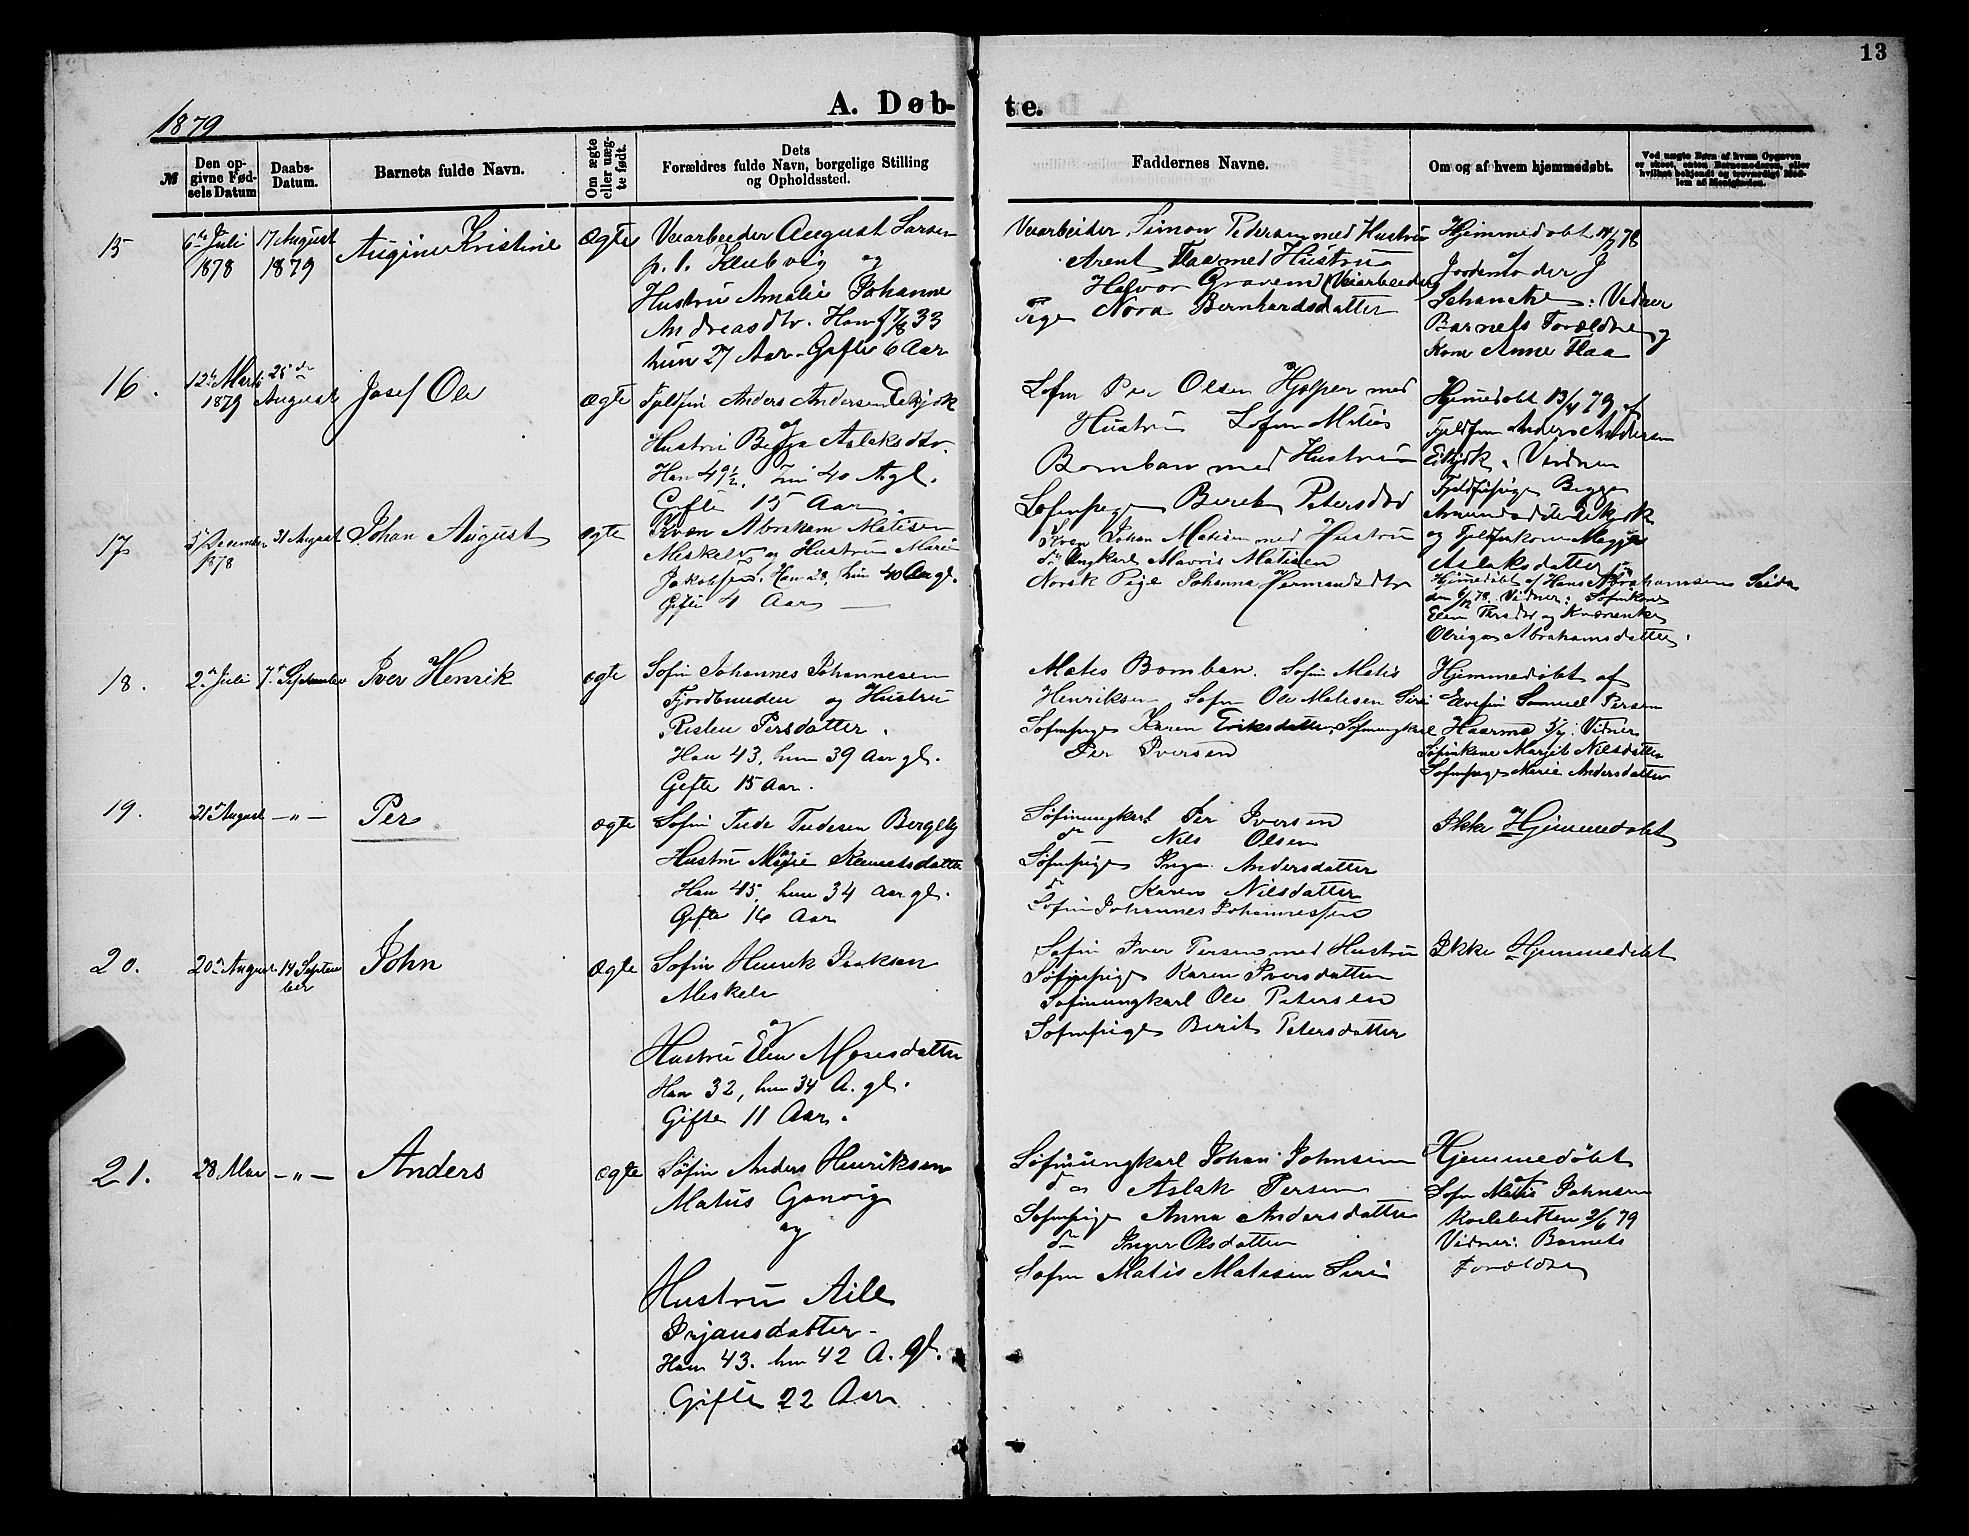 13
A. Døb-
te.
1879
№
Den op-
givne Fød-
sels Datum
Daabs-
Datum.
Barnets fulde Navn.
Om ægte
eller uæg-
te født.
Dets
Forældres fulde Navn, borgelige Stilling
og Opholdssted.
Faddernes Navne.
Om og af hvem hjemmedøbt.
Ved uægte Børn af hvem Opgaven
er skeet, enten Barnemoderen, eller
hvilket bekjendt og troværdigt Med-
lem af Menigheden.
15
6te Juli
1878
17 August
1879
Augine Kristine
Ægte
Veiarbeider August Larsen
p. t. Klubvig og
Hustru Amalie Johanne
Andreasdtr. Han f 7/8 33
hun 27 Aar. Gifte 6 Aar
Veiarbeider Simon Pedersen med Hustru
Arent Flaa med Hustru
Halvor Gravem (Veiarbeider)
Pige Nora Bernhardsdatter
Hjemmedøbt 14/7 78
Jordemoder J
Schancke: Vidner
Barnets Forældre og
Kone Anne Flaa
16.
12te Marts
1879
25de
August
Josef Ole
ægte
Fjeldfin Anders Andersen
og
Hustru Aslaksdtr.
Han 49½. hun 40 A gl.
Gifte 15 Aar.
Søfin Per Olsen Hjelper med
Hustru Søfin Matis
Bomban med Hustru
Søfinpige Berit Petersdtr
Hjemmedøbt 13/4 79 af
Fjeldfin Anders Andersen
Vidner
Fjeldfinpige
Amundsdatter
og Fjeldfinkone
Aslaksdatter
17
5 December
1878
31 August
Johan August
ægte
Kvæn Abraham Matisen
Meskelv og Hustru Marie
Han 28, hun 40 Aar gl.
Gifte 4 Aar
Kvæn Johan Matisen med Hustru
do Ungkarl Mavris Matisen
Norsk Pige Johanna Hermandsdtr
Hjemmedøbt af Hans Abrahamsen Seida
den 6/12 78. Vidner: Søfinkone
Elen Persdtr og Kvænenke
Abrahamsdatter.
18.
2den Juli
7de September
Iver Henrik
ægte
Søfin Johannes Johannesen
Fjordbunden og Hustru
Risten Persdatter.
Han 43, hun 39 Aar gl.
Gifte 15 Aar.
Mates Bomban. Søfin Matis
Henriksen Søfin Ole Matisen Siri
Søfinpige Karen Eriksdatter, Søfinungkarl
Per Iversen
Hjemmedøbt af
Elvefin Samuel Persen
Vidner
Søfinkone Marjit Nilsdatter
Søfinpige Marie Andersdatter
19.
21de August
— „ —
Per
ægte
Søfin Tude Tudesen Bergeby
og
Hustru
Han 45, hun 34 Aar gl.
Gifte 16 Aar
Søfinungkarl Per Iversen
do Nils Olsen
Søfinpige Inga Andersdatter
do Karen Nilsdatter
Søfin Johannes Johannessen
Ikke Hjemmedøbt
20.
20de August
14 Septem
ber
John
ægte
Søfin Henrik Isaksen
Meskelv
og
Hustru Elen Mosesdatter
Han 32, hun 34 A. gl.
Gifte 11 Aar.
Søfin Iver Persen med Hustru
Søfinpige Karen Iversdatter
Søfinungkarl Ole Petersen
Søfinpige Berit Petersdatter
Ikke Hjemmedøbt
21.
28 Mai
— „ —
Anders
ægte
Søfin Anders Henriksen
Matus
og
Hustru Aile
Prjansdatter
Han 43. hun 42 A. gl.
Gifte 22 Aar
Søfinungkarl Johan Johnsen
do Aslak Persen
Søfinpige Anna Andersdatter
do Inger Olsdatter
Søfin Matis Matisen Siri
Hjemmedøbt
af
Søfin Matis Johnsen
2/6 79
Vidner: Barnets
Forældre